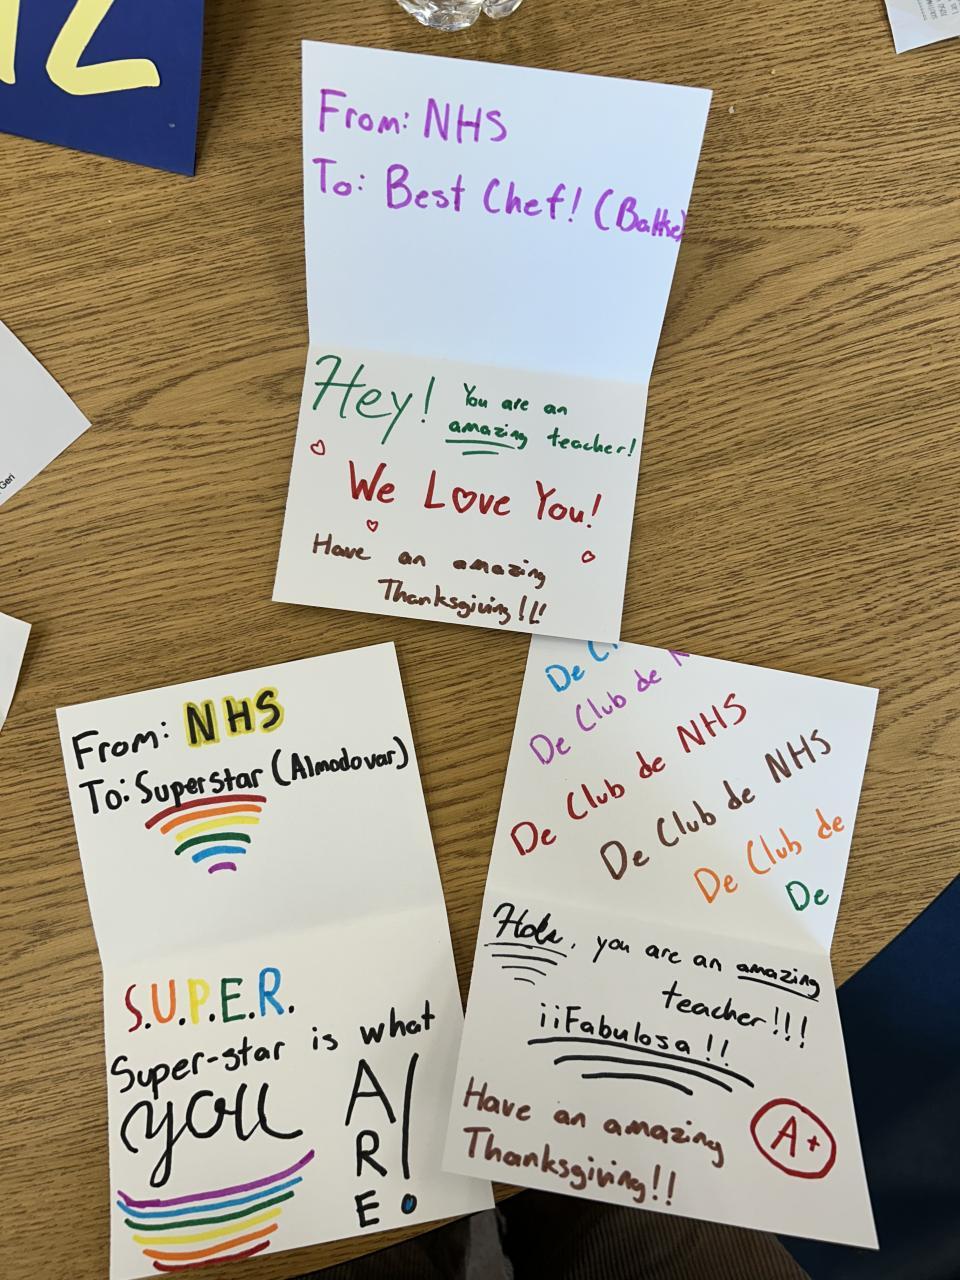 From: NHS
To: Best Chef! (
Hey! You are an
amazing teacher!
We Love You!
Have an amazing
Thanksgiving!!!
From: NHS
To: Superstar (Almodovar)
S.U.P.E.R.
Super-star is what
YOU ARE!
De Cl
De Club de N
De Club de NHS
De Club de NHS
De Club de
De
Hola, you are an amazing
teacher!!!
¡¡Fabulosa!!
Have an amazing
Thanksgiving!!
A+
Geri